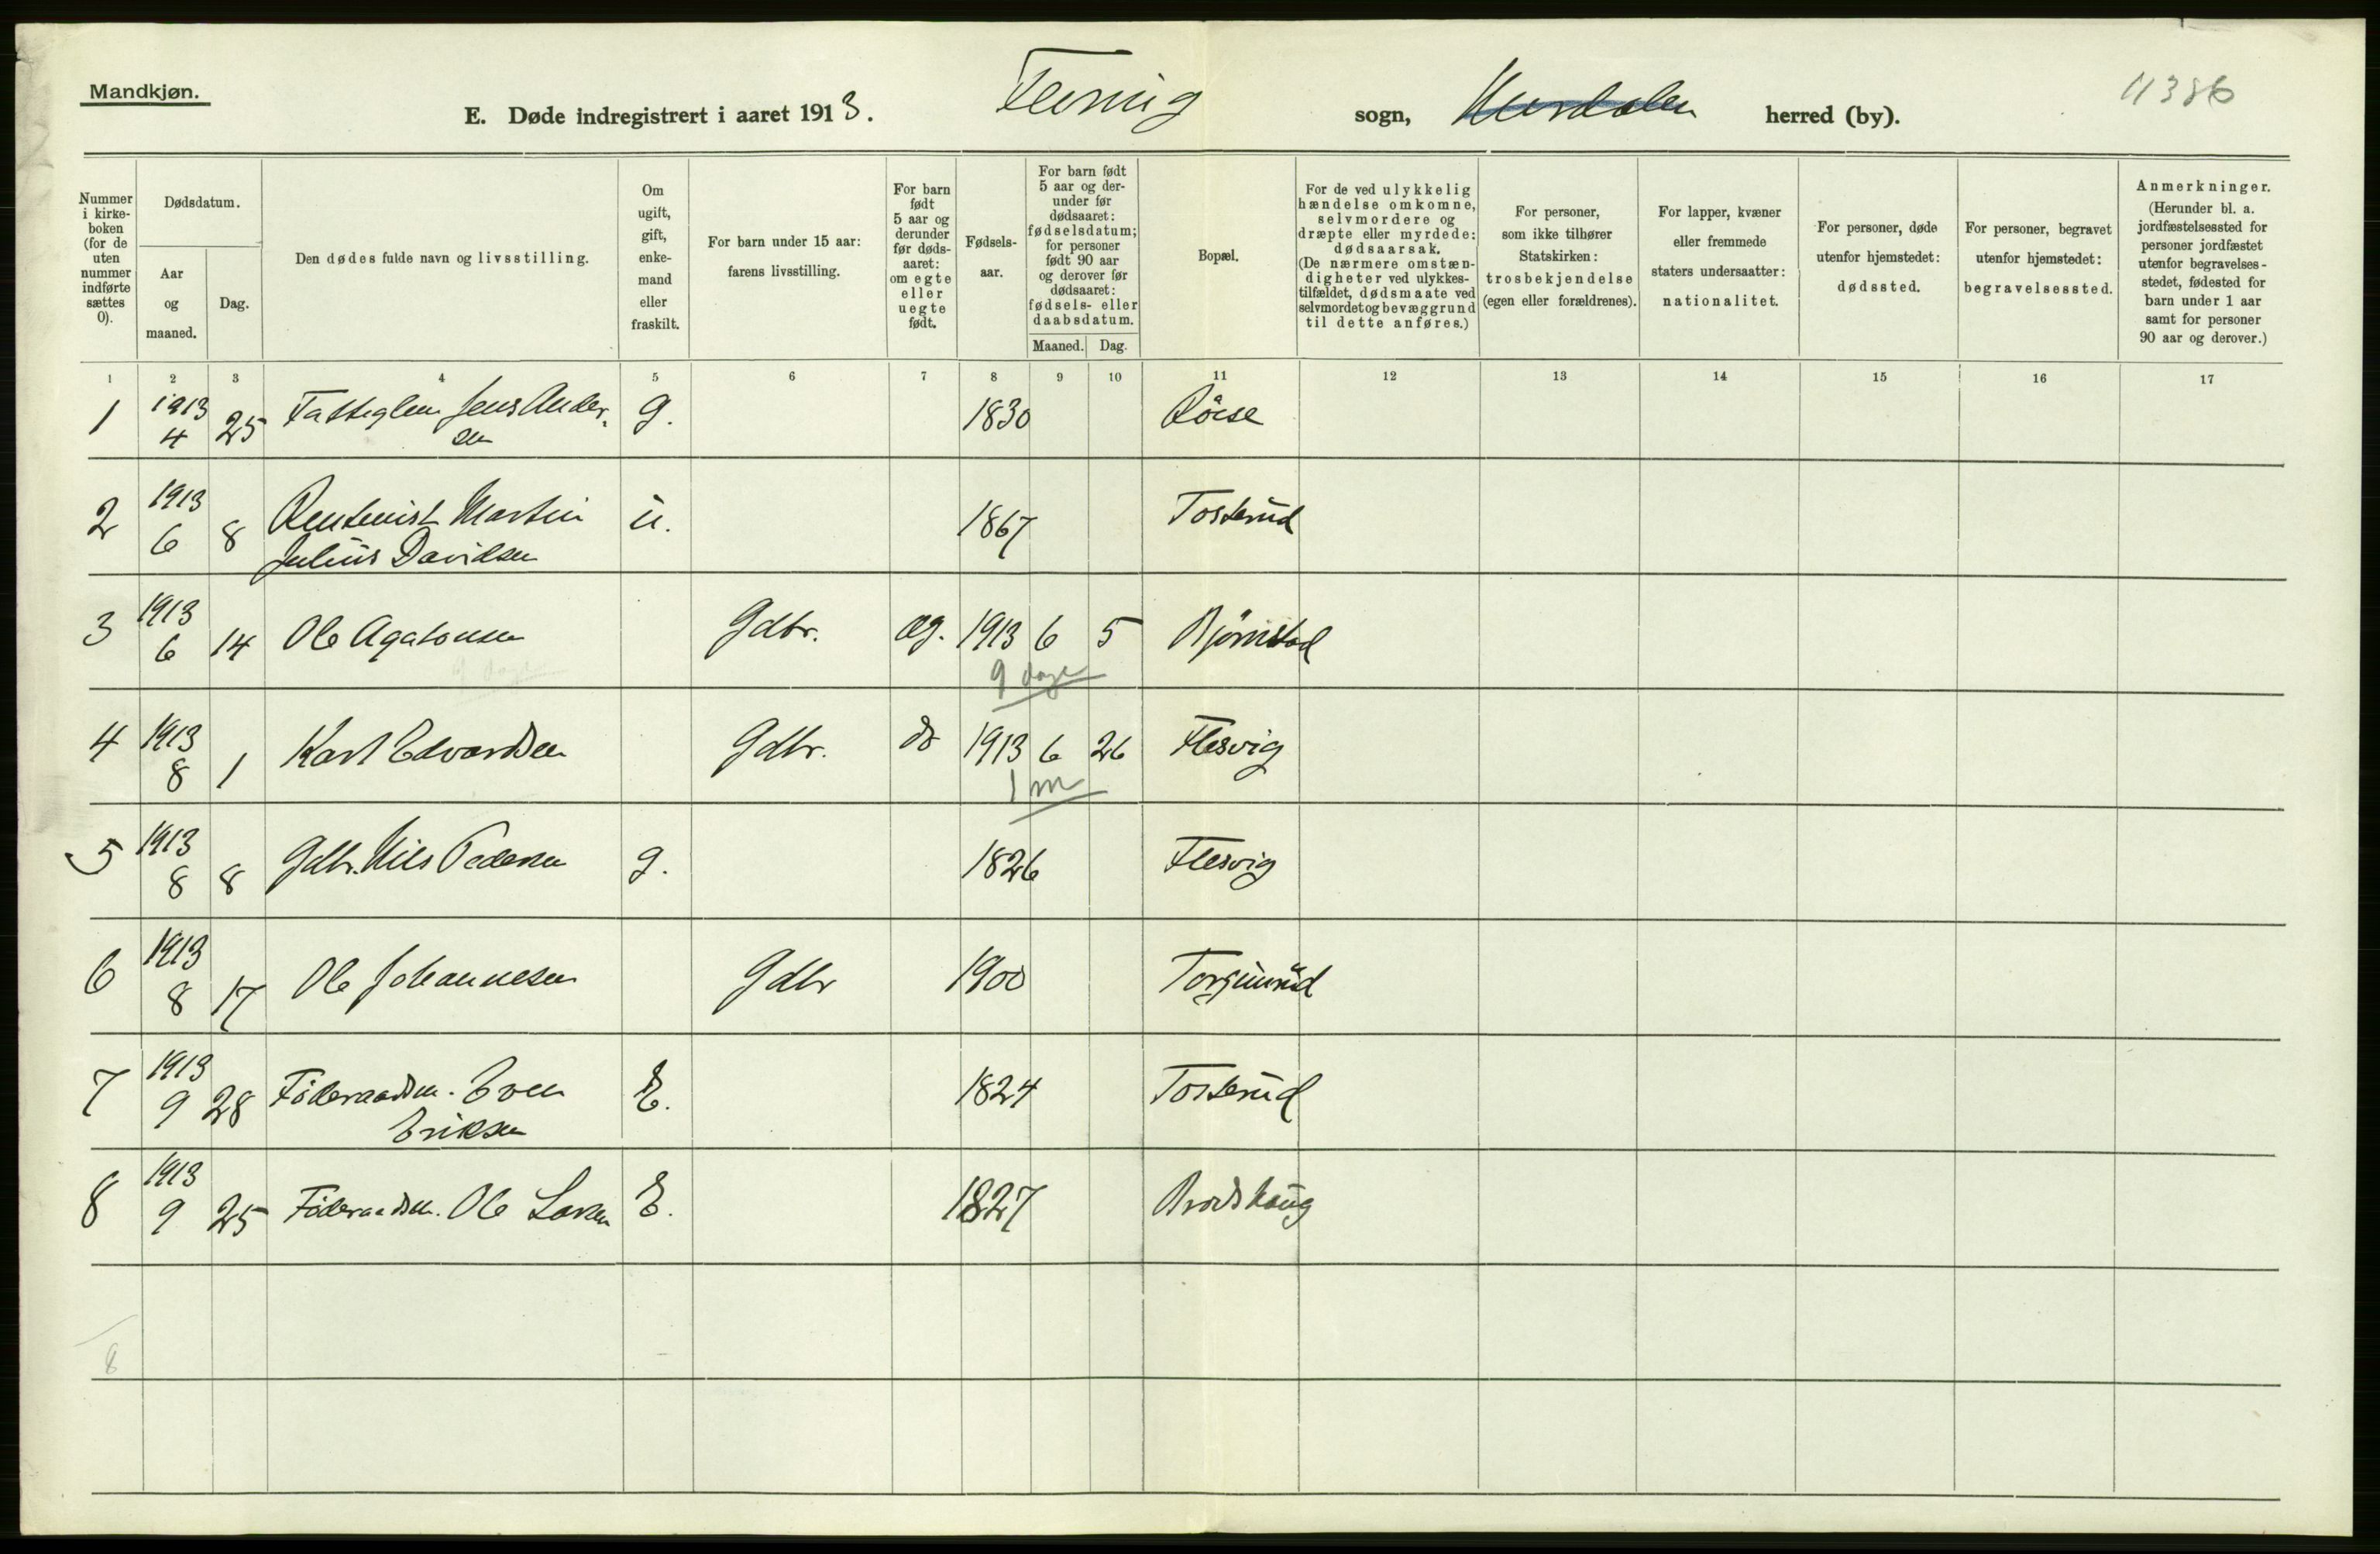 Mandkjøn.
E. Døde indregistrert i aaret 1913. Feiring sogn, Hurdalen herred (by). 4386
Nummer i kirkeboken (for de uten nummer indførte sættes 0).
Dødsdatum.
Aar og maaned.
Dag.
Den dødes fulde navn og livsstilling.
Om ugift, gift, enkemand eller fraskilt.
For barn under 15 aar: farens livsstilling.
For barn født 5 aar og derunder før dødsaaret: om egte eller uegte født.
Fødselsaar.
For barn født 5 aar og derunder før dødsaaret: fødselsdatum; for personer født 90 aar og derover før dødsaaret: fødsels- eller daabsdatum.
Maaned. Dag.
Bopæl.
For de ved ulykkelig hændelse omkomne, selvmordere og dræpte eller myrdede: dødsaarsak. (De nærmere omstændigheter ved ulykkestilfældet, dødsmaate ved selvmordet og bevæggrund til dette anføres.)
For personer, som ikke tilhører Statskirken: trosbekjendelse (egen eller forældrenes).
For lapper, kvæner eller fremmede staters undersaatter: nationalitet.
For personer, døde utenfor hjemstedet: dødssted.
For personer, begravet utenfor hjemstedet: begravelsessted.
Anmerkninger. (Herunder bl. a. jordfæstelsessted for personer jordfæstet utenfor begravelsesstedet, fødested for barn under 1 aar samt for personer 90 aar og derover.)
1 2 3 4 5 6 7 8 9 10 11 12 13 14 15 16 17
1 1913 4 25 Fattiglem Jens Andersen g. 1830
2 1913 6 8 Rentenist Martin Julius Davidsen u. 1867 Tosterud
3 1913 6 14 Ole Agatonsen Gdbr. æg. 1913 6 5 Bjørnstad
9 dage
4 1913 8 1 Karl Edvardsen Gdbr. do 1913 6 26 Flesvig
1 m
5 1913 8 8 Gdbr. Nils Pedersen g. 1826 Flesvig
6 1913 8 17 Ole Johannesen Gdbr 1900 Torgunrud
7 1913 9 28 Føderaadsm. Even Eriksen E. 1824 Tosterud
8 1913 9 25 Føderaadsm. Ole Larsen E. 1827
8